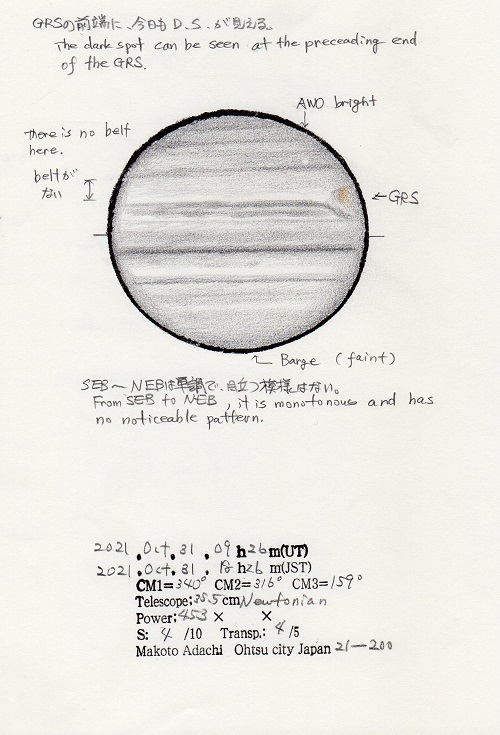 GRSの前端に、今日も D.S. が見える。
The dark spot can be seen at the preceading end
of the GRS.
AWO bright
there is no belt
here.
beltが
ない
←GRS
Barge (faint)
SEB～NEBは単調で、目立つ模様はない。
From SEB to NEB, it is monotonous and has
no noticeable pattern.
2021.Oct.31.09h26m(UT)
2021.Oct.31.18h26m(JST)
CM1=340° CM2=316° CM3=159°
Telescope:35.5cm Newtonian
Power:453× ×
S: 4 /10 Transp.: 4 /5
Makoto Adachi Ohtsu city Japan 21—200